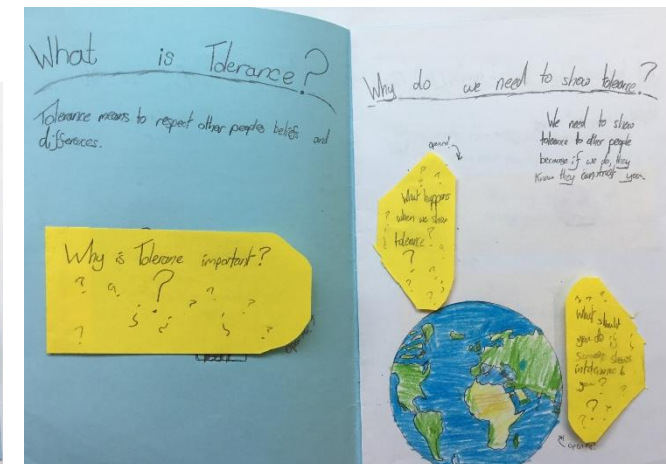 What is Tolerance?
Tolerance means to respect other peoples beliefs and
differences.
Why is Tolerance important?
Why do we need to show tolerance?
We need to show
tolerance to other people
because if we do, they
know they can trust you.
open!
What happens
when we show
tolerance?
What should
you do if
someone shows
intolerance to
you?